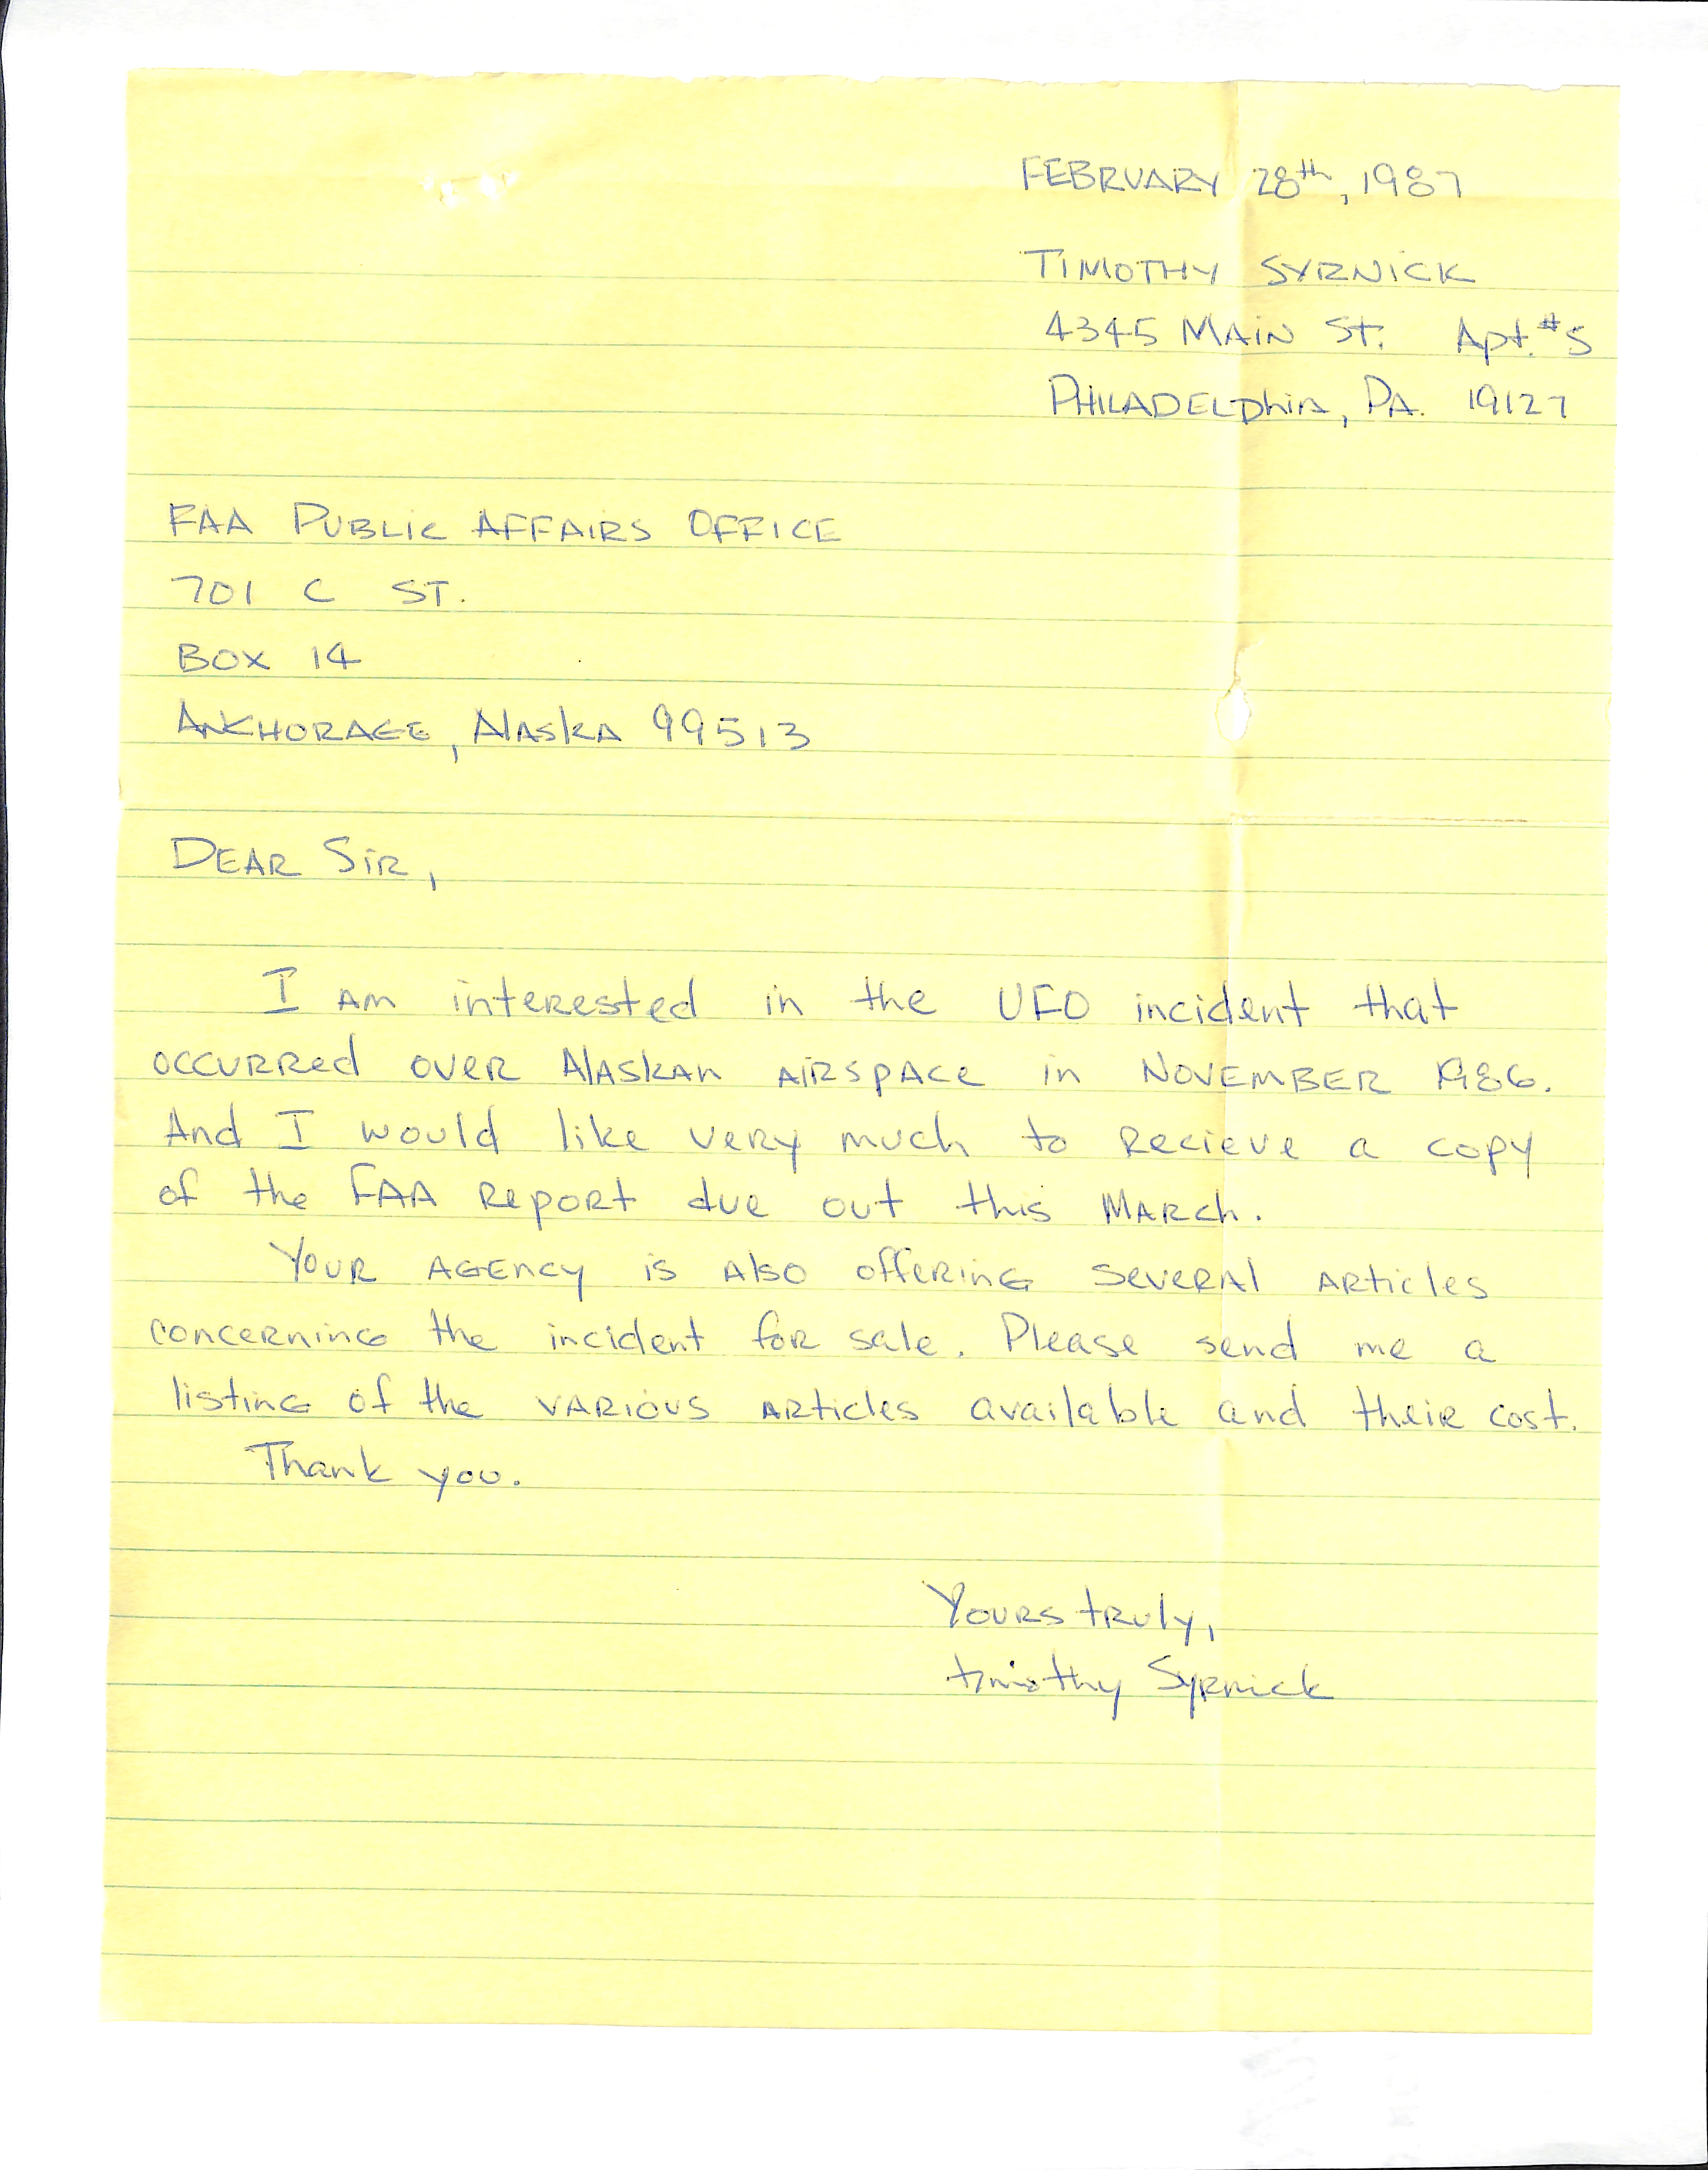 FEBRUARY 28th, 1987
TIMOTHY SYRNICK
4345 MAIN St. Apt. #5
PHILADELPHIA, PA. 19127
FAA PUBLIC AFFAIRS OFFICE
701 C ST.
BOX 14
ANCHORAGE, ALASKA 99513
DEAR SIR,
I AM interested in the UFO incident that
occurred over Alaskan airspace in NOVEMBER 1986.
And I would like very much to recieve a copy
of the FAA report due out this MARCH.
Your agency is also offering several articles
concerning the incident for sale. Please send me a
listing of the various articles available and their cost.
Thank you.
Yours truly,
timothy Syrnick